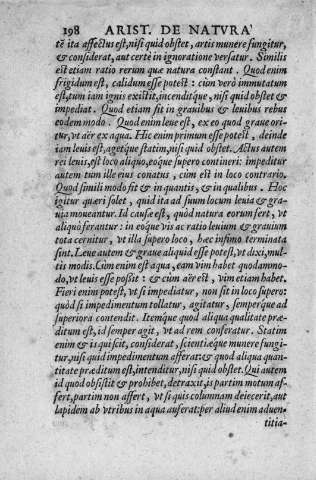 198 ARIST. DE NATVRA
tē ita affectus est, nisi quid obstet, artis munere fungitur,
& considerat, aut certè in ignoratione versatur. Similis
est etiam ratio rerum quæ natura constant. Quod enim
frigidum est, calidum esse potest: cùm verò immutatum
est, tum iam ignis existit, incenditque, nisi quid obstet &
impediat. Quod etiam fit in grauibus & leuibus rebus
eodem modo. Quod enim leue est, ex eo quod graue ori-
tur, vt aër ex aqua. Hic enim primum esse potest, deinde
iam leuis est, agetque statim, nisi quid obstet. Actus autem
rei leuis, est loco aliquo, eóque supero contineri: impeditur
autem tum ille eius conatus, cùm est in loco contrario.
Quod simili modo fit & in quantis, & in qualibus. Hoc
igitur quæri solet, quid ita ad suum locum leuia & gra-
uia moueantur. Id causæ est, quòd natura eorum fert, vt
aliquò ferantur: in eóque vis ac ratio leuium & grauium
tota cernitur, vt illa supero loco, hæc infimo terminata
sint. Leue autem & graue aliquid esse potest, vt dixi, mul-
tis modis. Cùm enim est aqua, eam vim habet quodammo-
do, vt leuis esse possit: & cùm aër est, vim etiam habet.
Fieri enim potest, vt si impediatur, non sit in loco supero:
quòd si impedimentum tollatur, agitur, sempérque ad
superiora contendit. Itémque quod aliqua qualitate præ-
ditum est, id semper agit, vt ad rem conferatur. Statim
enim & is qui scit, considerat, scientiæque munere fungi-
tur, nisi quid impedimentum afferat: & quod aliqua quan-
titate præditum est, intenditur, nisi quid obstet. Qui autem
id quod obsistit & prohibet, detraxit, is partim motum af-
fert, partim non affert, vt si quis columnam deiecerit, aut
lapidem ab vtribus in aqua auferat: per aliud enim aduen-
titia-